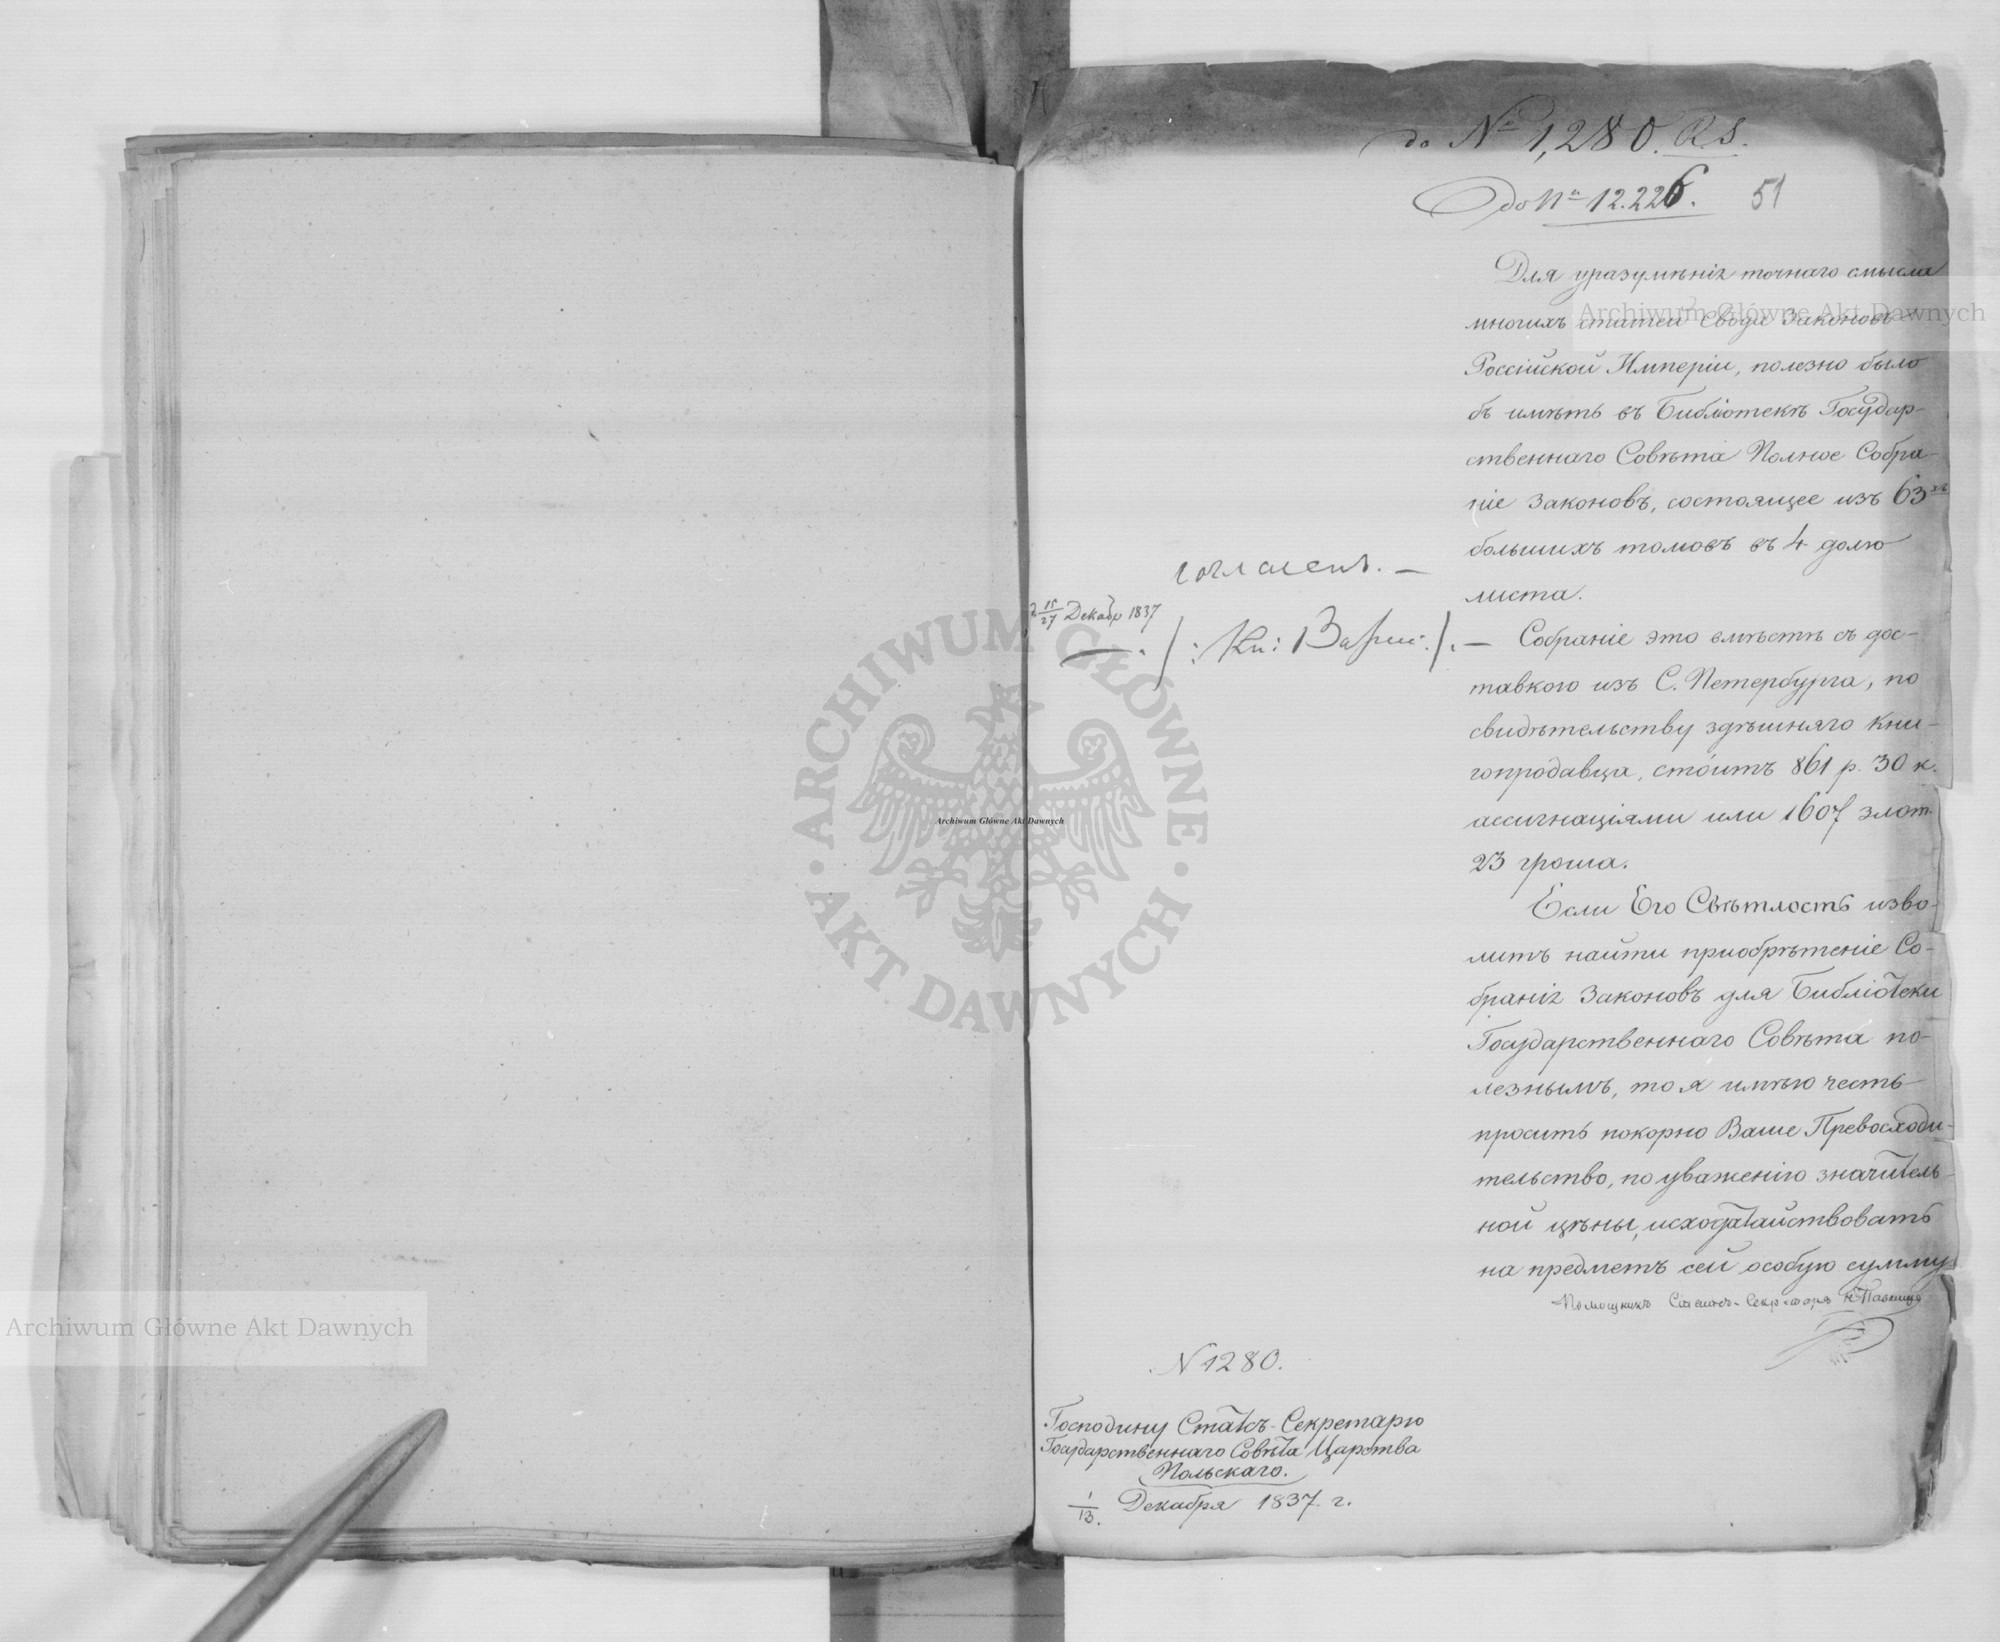 до № 1,280. R.S.
до № 12.226. 51
Для уразумѣнія точнаго смысла
многихъ статей Свода Законовъ
Россійской Имперіи, полезно было
бъ имѣть въ Библіотекѣ Государ-
ственнаго Совѣта Полное Собра-
ніе Законовъ, состоящее изъ 63хъ
большихъ томовъ въ 4 долю
листа.
Собраніе это вмѣстѣ съ дос-
тавкою изъ С. Петербурга, по
свидѣтельству здѣшняго Кни-
гопродавца, стоитъ 861 р. 30 к.
ассигнаціями или 1607 злот.
23 гроша.
Если Его Свѣтлость изво-
литъ найти приобрѣтеніе Со-
бранія Законовъ для Библіотеки
Государственнаго Совѣта по-
лезнымъ, то я имѣю честь
просить покорно Ваше Превосходи-
тельство, по уваженію значитель-
ной цѣны, исходатайствовать
на предметъ сей особую сумму
Помощникъ Статсъ-Секретаря
согласенъ. —
15/27 Декабр 1837
/: Кн: Варш: /. —
N 1280.
Господину Статсъ-Секретарю
Государственнаго Совѣта Царства
Польскаго.
1/13. Декабря 1837 г.
Archiwum Główne Akt Dawnych
Archiwum Główne Akt Dawnych
Archiwum Główne Akt Dawnych
ARCHIWUM GŁÓWNE · AKT DAWNYCH ·